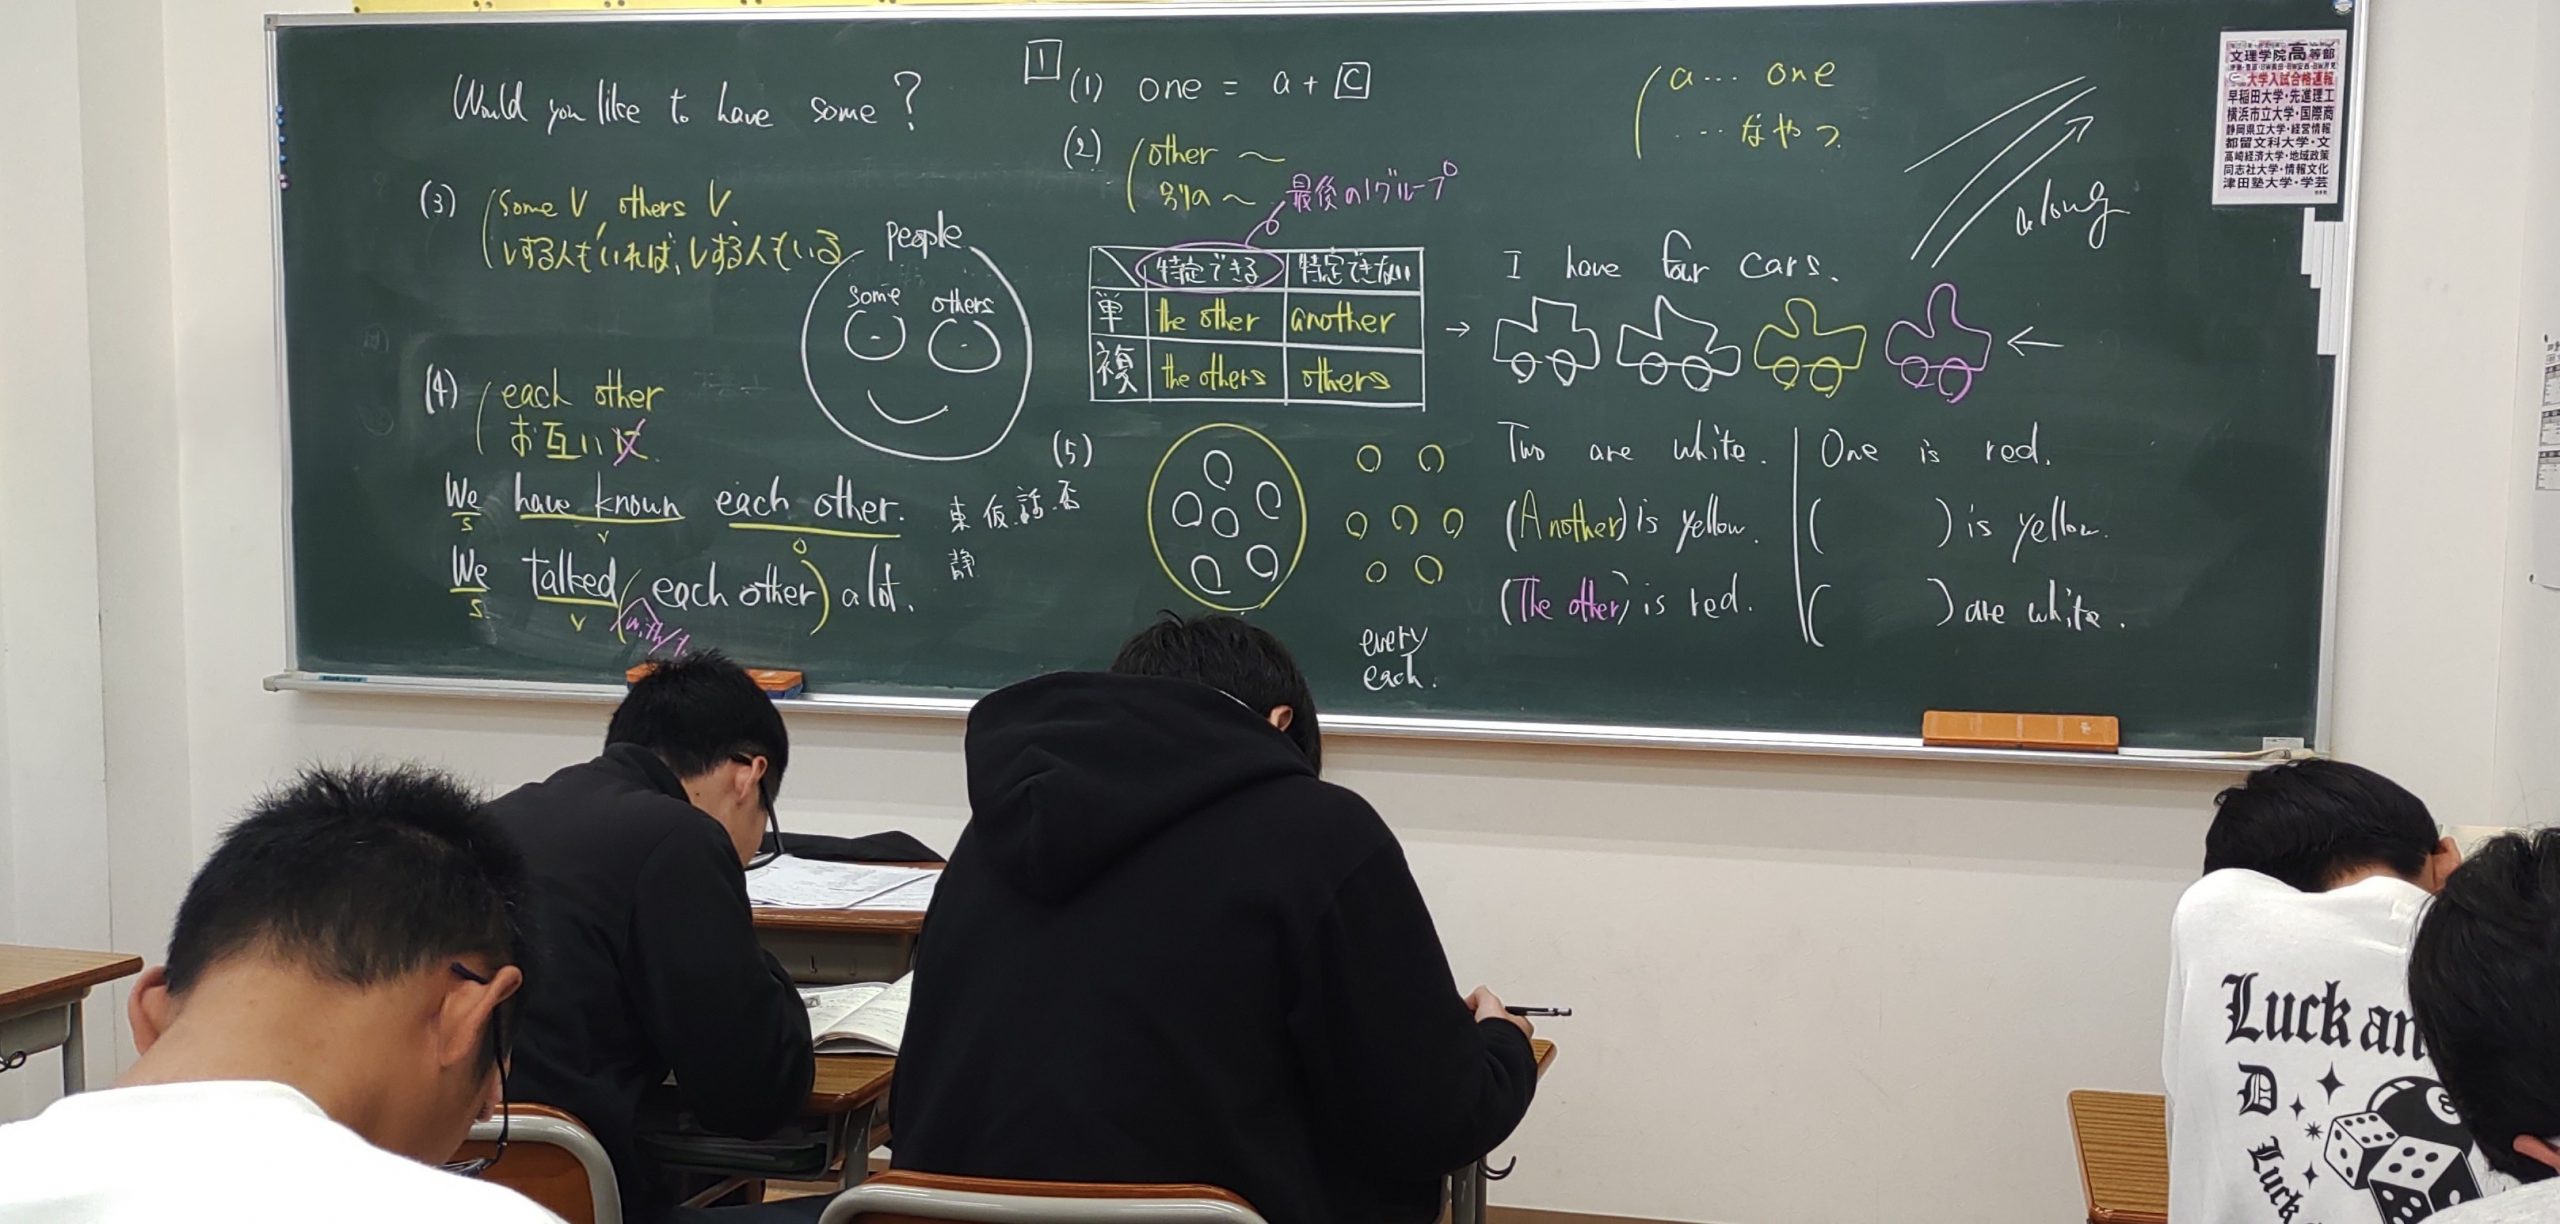 Would you like to have some?
(3) some V, others V.
Vする人もいれば、Vする人もいる
people
some others
(4) each other
お互いに
We have known each other.
S V O
We talked (each other) a lot.
S V
with/to
東 仮 話 否
静
1 (1) one = a + C
(2) other ~
別の~
最後の1グループ
特定できる 特定できない
単 the other another
複 the others others
(5)
every
each.
a … one
… なやつ
along
I have four cars.
Two are white.
(Another) is yellow.
(The other) is red.
One is red.
( ) is yellow.
( ) are white.
文理学院高等部
大学入試合格速報
早稲田大学・先進理工
横浜市立大学・国際商
静岡県立大学・経営情報
都留文科大学・文
高崎経済大学・地域政策
同志社大学・情報文化
津田塾大学・学芸
Luck an
D
Luck
8